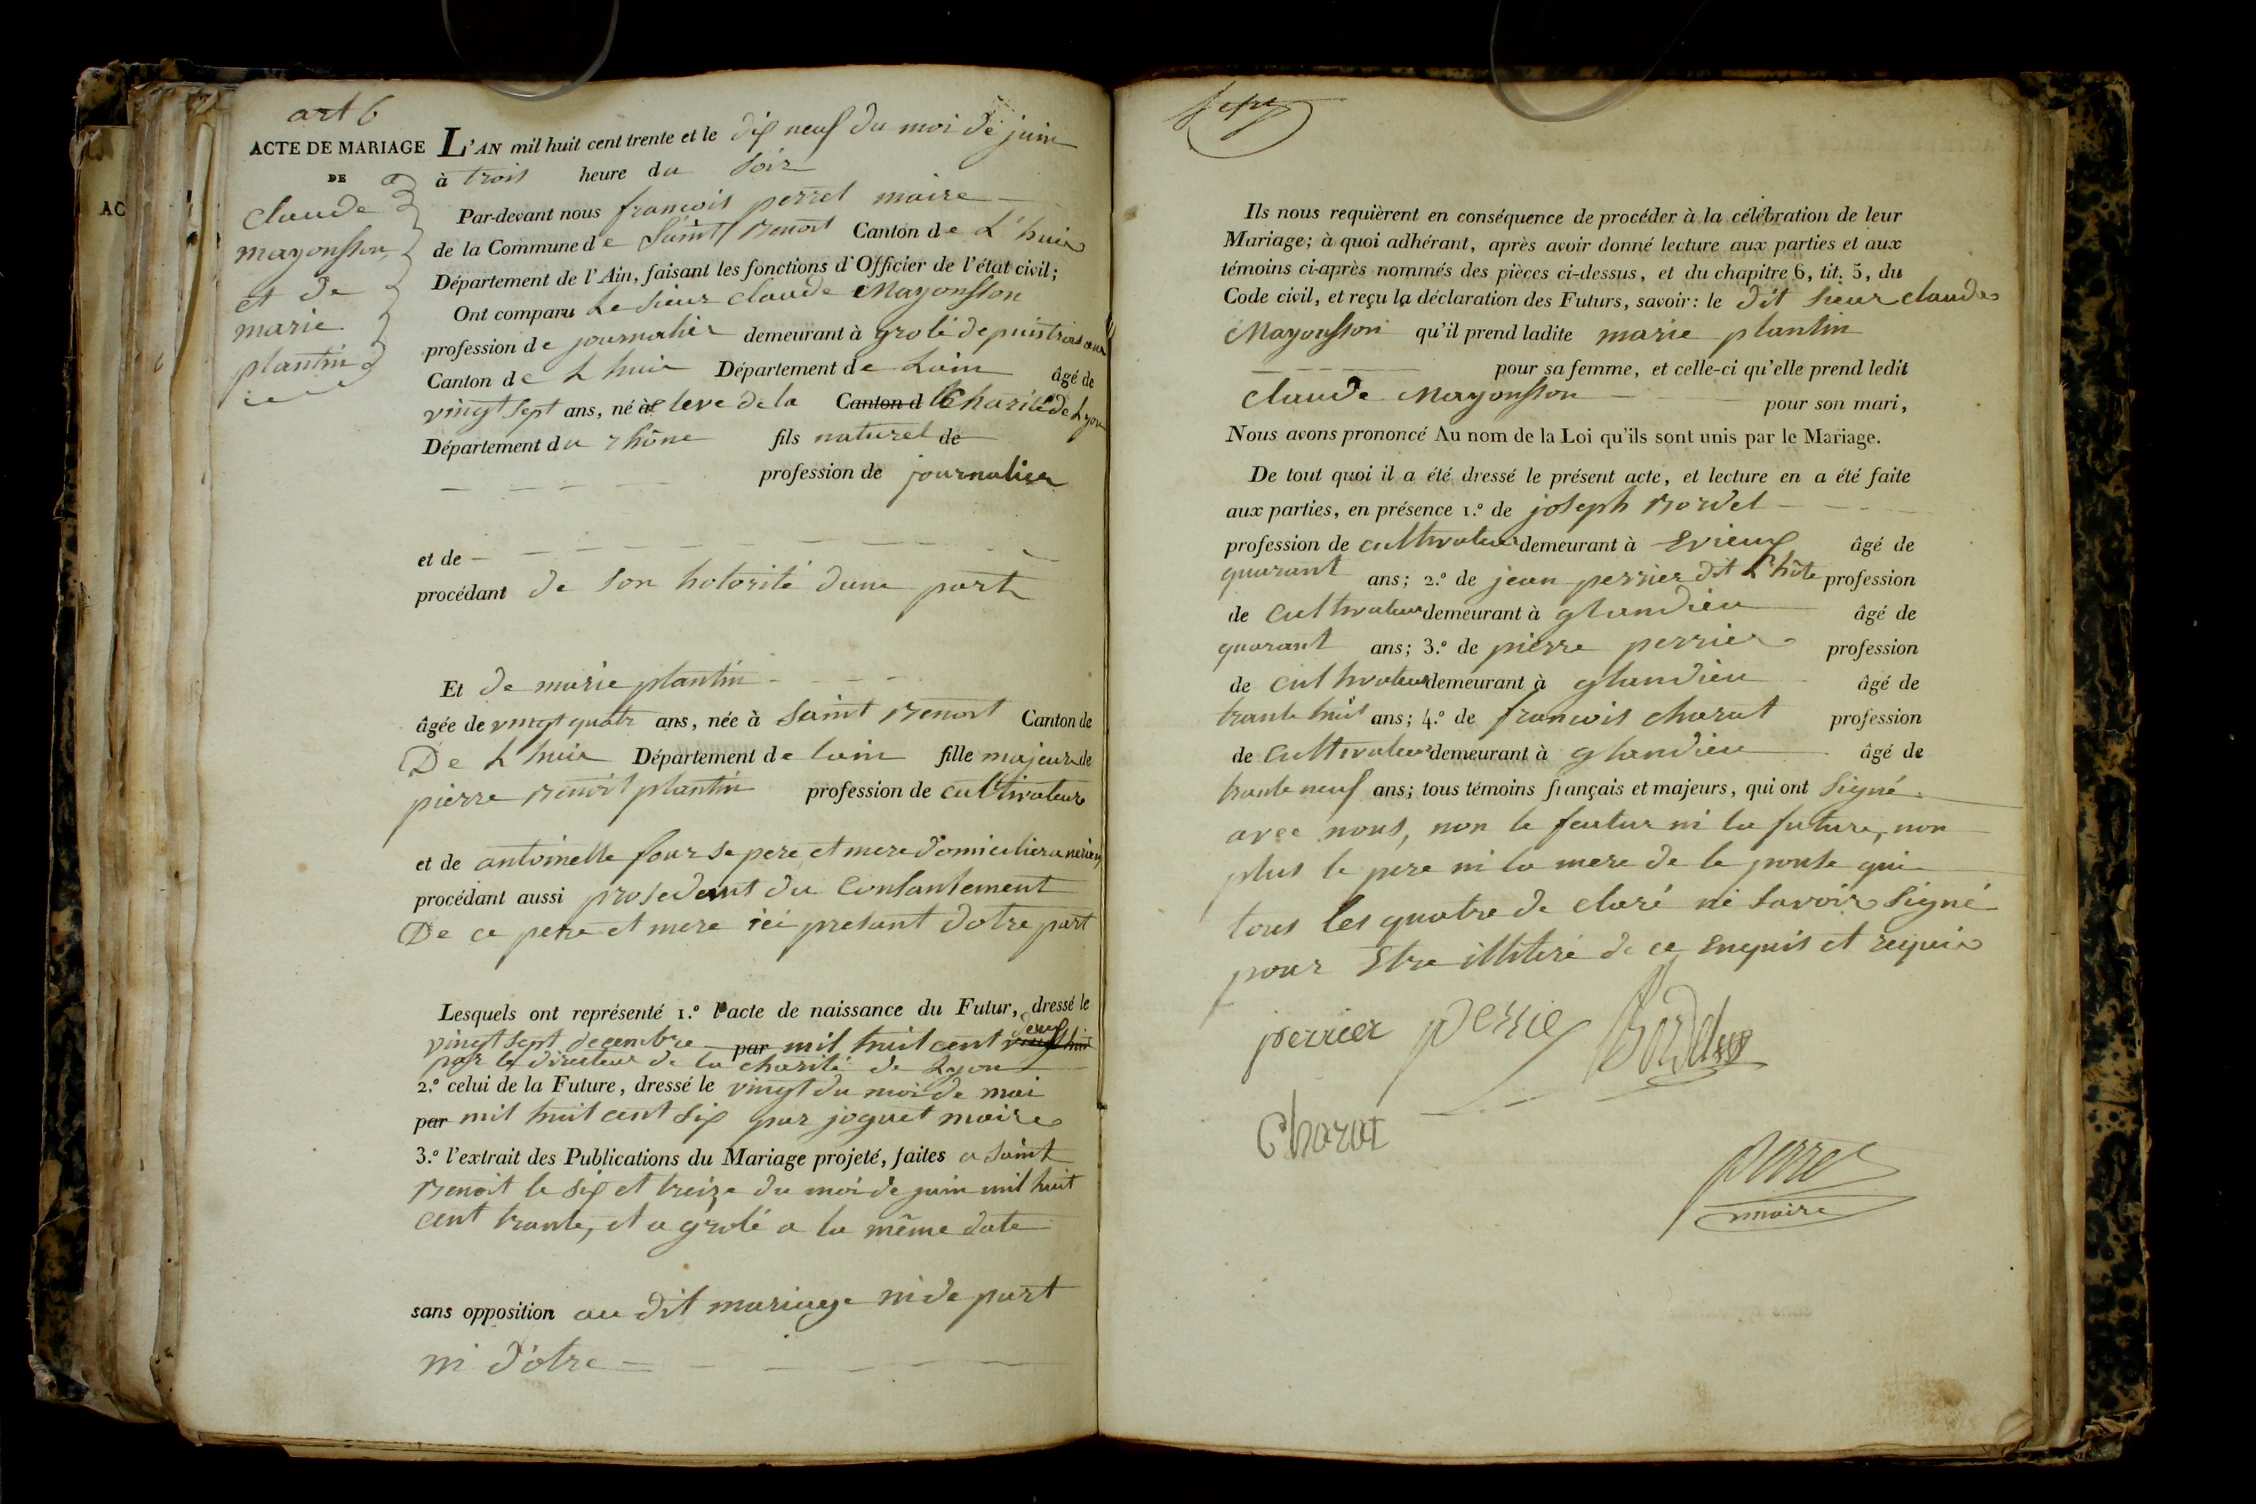 art 6
ACTE DE MARIAGE
DE
Claude
mayousson
et de
marie
plantin
AC
L'AN mil huit cent trente et le dix neuf du moi de juin
à trois heure du soir
Par-devant nous françois perret maire
de la Commune de Saint Benoit Canton de L'huis
Département de l'Ain, faisant les fonctions d'Officier de l'état civil;
Ont comparu Le sieur claude Mayousson
profession de journalier demeurant à grolé depuis trois ans
Canton de L huis Département de Lain âgé de
vingt sept ans, né à leve de la Canton d Charité de Lyon
Département du rhône fils naturel de
profession de journalier
et de
procédant de son hotorité dune part
Et de marie plantin
âgée de vingt quatr ans, née à Saint Benoit Canton de
De L huis Département de lain fille majeure de
pierre Benoit plantin profession de cultivateur
et de antoinette four se pere et mere domicilier a
procédant aussi prosedant du consantement
De ce pere et mere ici presant dotre part
Lesquels ont représenté 1.º l'acte de naissance du Futur, dressé le
vingt sept decembre par mil huit cent deux
par le directeur de la charité de Lyon
2.º celui de la Future, dressé le vingt du moi de mai
par mil huit cent six par joguet maire
3.º l'extrait des Publications du Mariage projeté, faites a saint
Benoit le six et treize du moi de juin mil huit
cent trante, et a grolé a la même date
sans opposition au dit mariage ni de part
ni d'otre
Ils nous requièrent en conséquence de procéder à la célébration de leur
Mariage; à quoi adhérant, après avoir donné lecture aux parties et aux
témoins ci-après nommés des pièces ci-dessus, et du chapitre 6, tit. 5, du
Code civil, et reçu la déclaration des Futurs, savoir: le dit sieur claude
Mayousson qu'il prend ladite marie plantin
pour sa femme, et celle-ci qu'elle prend ledit
claude Mayousson pour son mari,
Nous avons prononcé Au nom de la Loi qu'ils sont unis par le Mariage.
De tout quoi il a été dressé le présent acte, et lecture en a été faite
aux parties, en présence 1.º de joseph Bordel
profession de cultivateur demeurant à Evieux âgé de
quarant ans; 2.º de jean perrier dit L'hôte profession
de cultivateur demeurant à glandieu âgé de
quarant ans; 3.º de pierre perrier profession
de cultivateur demeurant à glandieu âgé de
trante huit ans; 4.º de françois charat profession
de cultivateur demeurant à glandieu âgé de
trante neuf ans; tous témoins français et majeurs, qui ont signé
avec nous, non le futur ni la future, non
plus le pere ni la mere de le pouse qui
tous les quatre de claré ne savoir signé
pour Etre illiteré de ce enquis et requis
perrier perrier Bordel
Charat
perret
maire